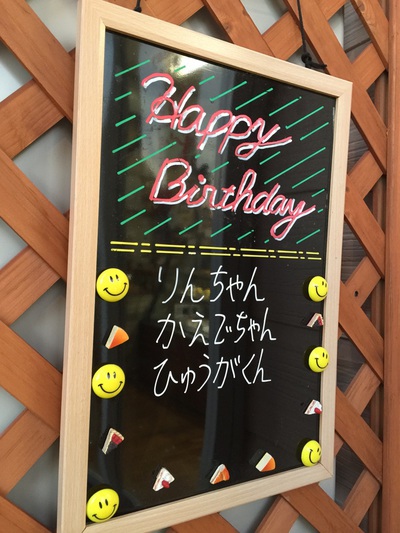 Happy
Birthday
りんちゃん
かえでちゃん
ひゅうがくん